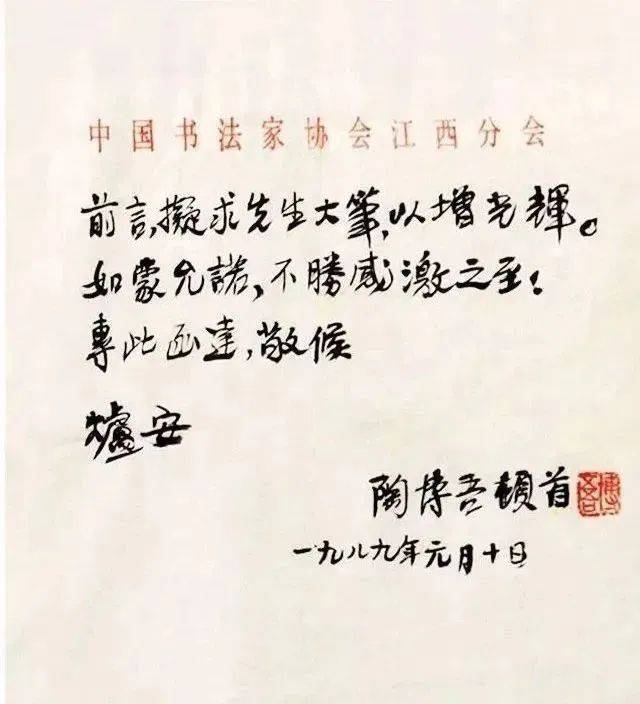 中国书法家协会江西分会
前言,擬求先生大筆,以增光輝。
如蒙允諾,不勝感激之至!
專此函達,敬候
爐安
陶博吾頓首
博吾
一九八九年元月十日